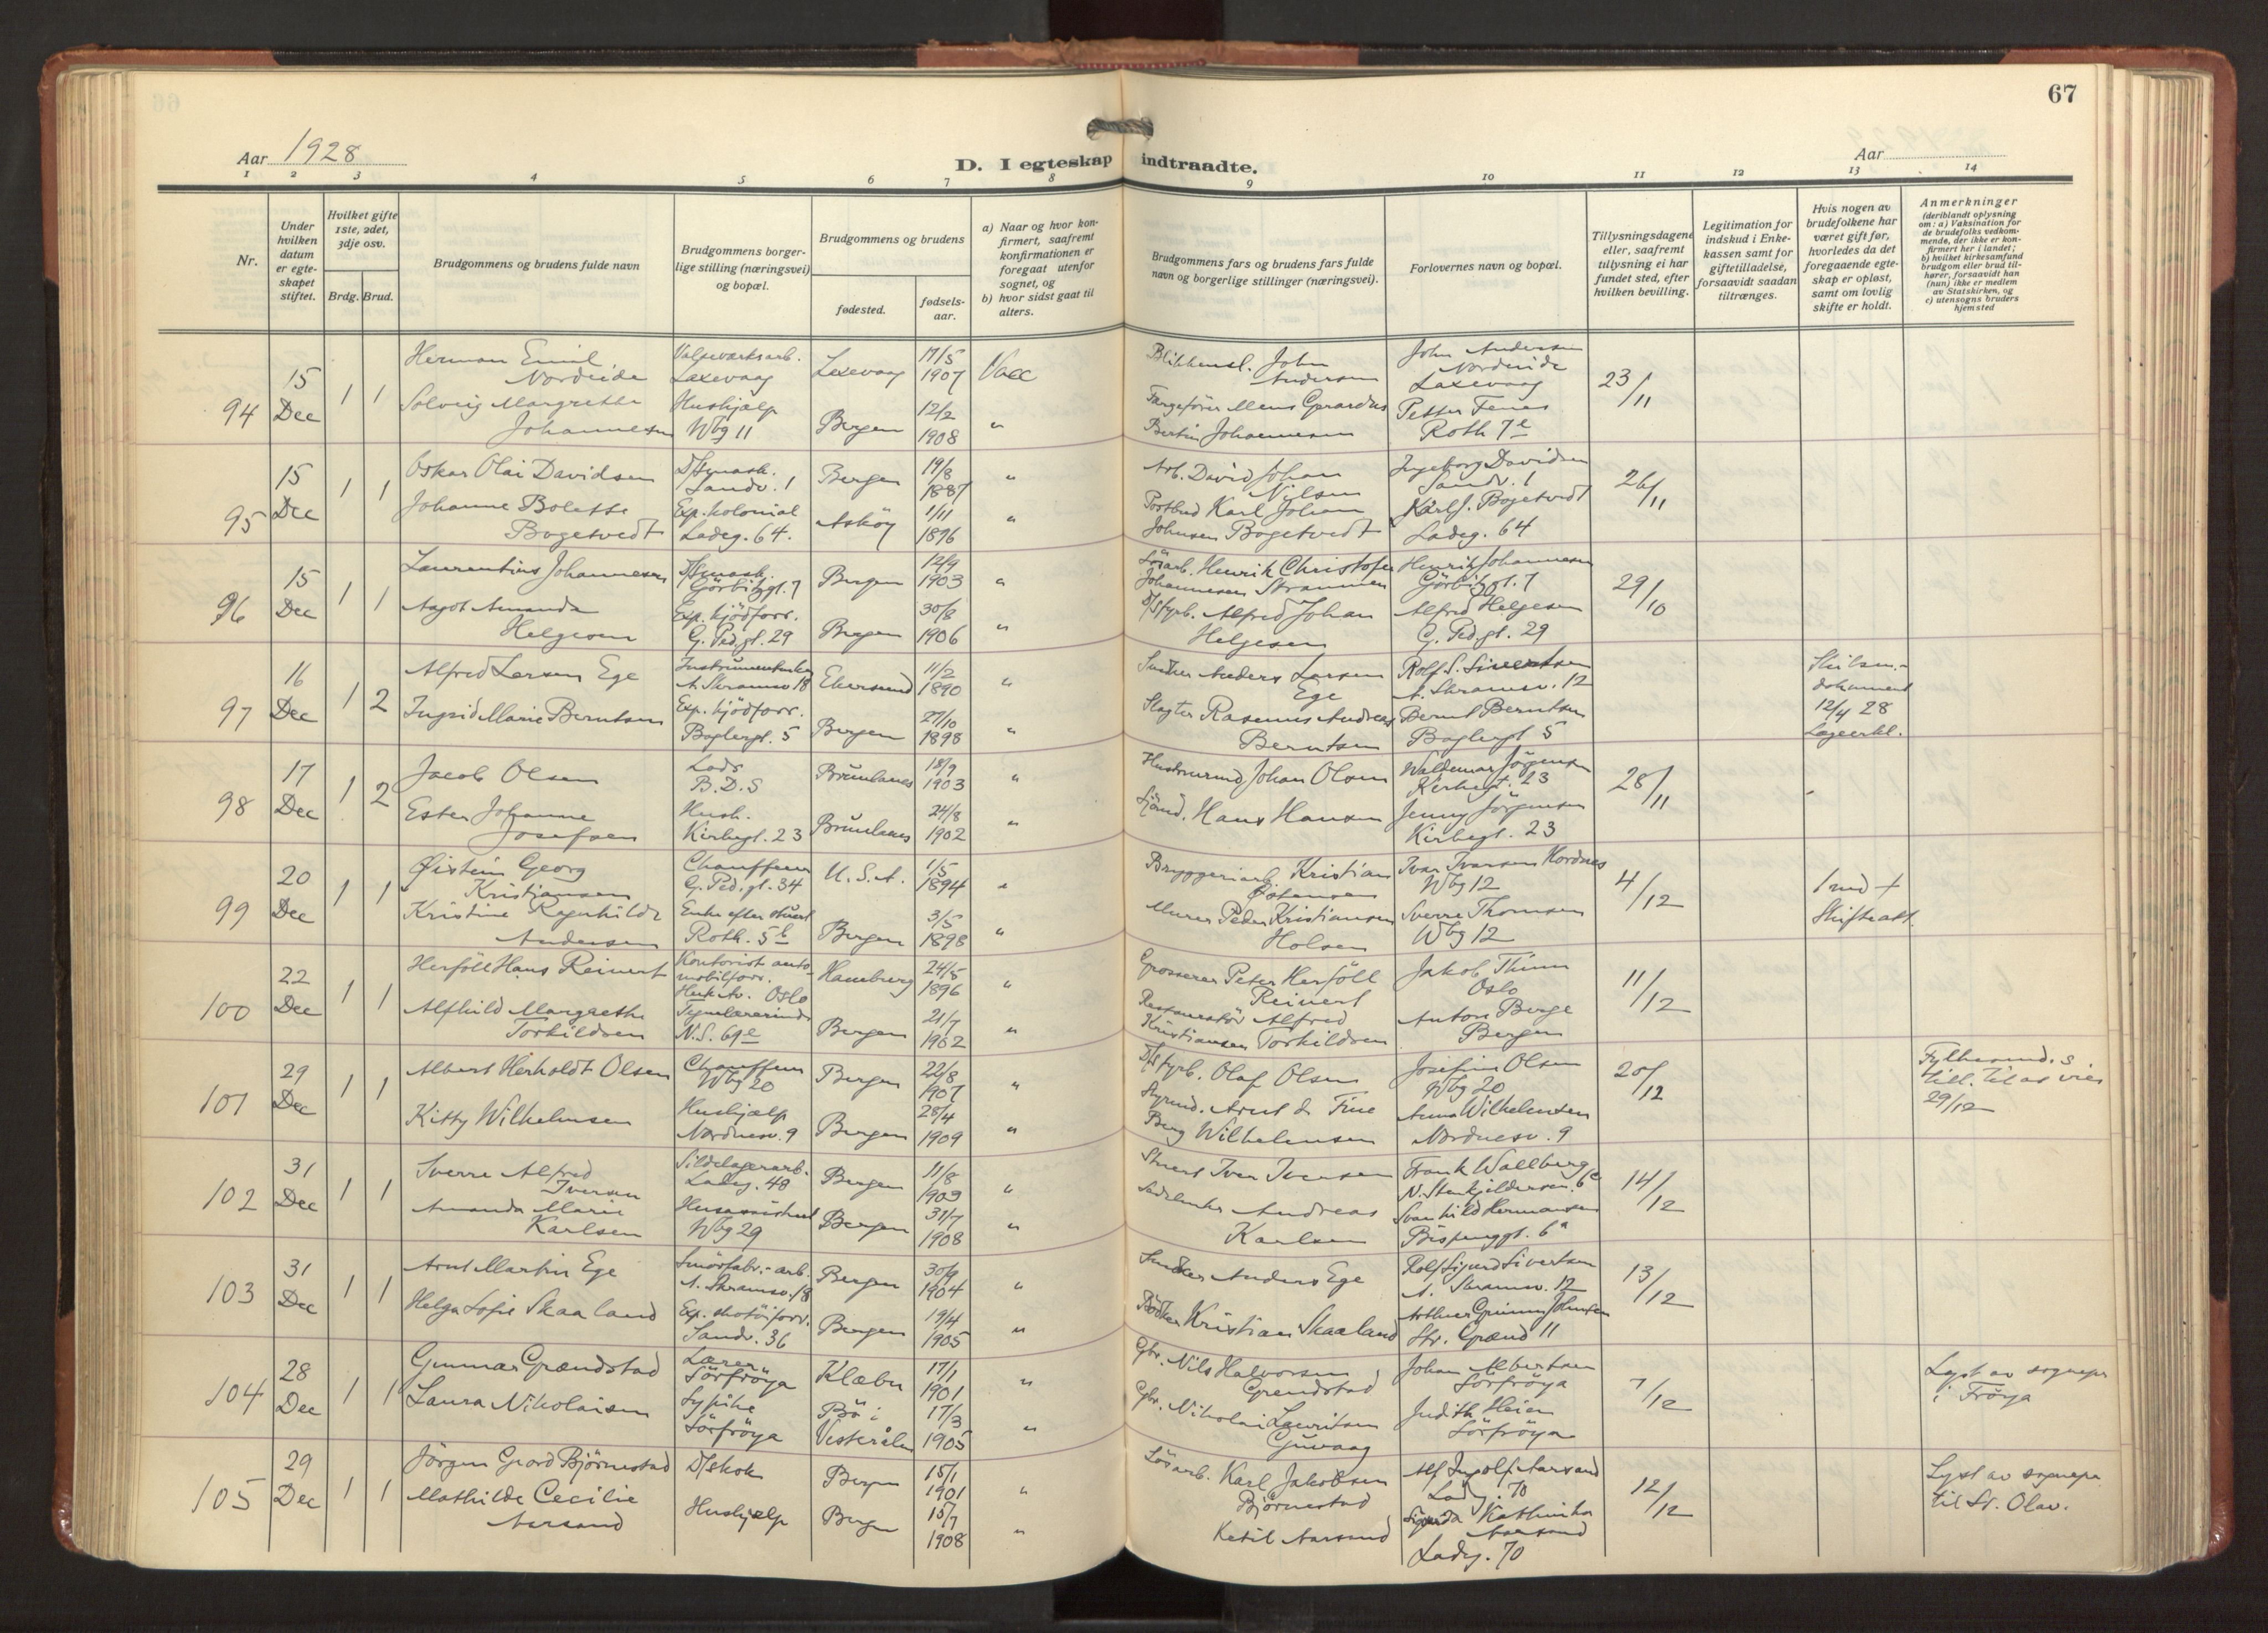 67
Aar 1928
D. I egteskap indtraadte.
Aar
1 2 3 4 5 6 7 8 9 10 11 12 13 14
Nr.
Under hvilken datum er egteskapet stiftet.
Hvilket gifte 1ste, 2det, 3dje osv.
Brdg. Brud.
Brudgommens og brudens fulde navn
Brudgommens borgerlige stilling (næringsvei) og bopæl.
Brudgommens og brudens
fødested.
fødselsaar.
a) Naar og hvor konfirmert, saafremt konfirmationen er foregaat utenfor sognet, og
b) hvor sidst gaat til alters.
Brudgommens fars og brudens fars fulde navn og borgerlige stillinger (næringsvei).
Forlovernes navn og bopæl.
Tillysningsdagene eller, saafremt tillysning ei har fundet sted, efter hvilken bevilling.
Legitimation for indskud i Enkekassen samt for giftetilladelse, forsaavidt saadan tiltrænges.
Hvis nogen av brudefolkene har været gift før, hvorledes da det foregaaende egteskap er opløst, samt om lovlig skifte er holdt.
Anmerkninger
(deriblandt oplysning om: a) Vaksination for de brudefolks vedkommende, der ikke er konfirmert her i landet; b) hvilket kirkesamfund brudgom eller brud tilhører, forsaavidt han (hun) ikke er medlem av Statskirken, og c) utensogns bruders hjemsted
94 15 Dec 1 1
Herman Emil Nordeide Laxevaag Laxevaag 17/5 1907 Vacc
Solveig Margrethe Johannesen Hushjælp Wbg 11 Bergen 12/2 1908 "
John Andersen
John Andersen Nordeide Laxevaag
Bertin Johannesen
Petter Roth 7e
23/11
95 15 Dec 1 1
Oskar Olai Davidsen Sandv. 1 Bergen 19/8 1887 "
Johanne Bolette Bogetvedt Exp. kolonial Ladeg. 64. Askøy 1/11 1896 "
Arb. David Johan Nilsen
Ingeborg Davidsen Sandv. 1
Postbud Karl Johan Johnsen Bogetvedt
Karl J. Bogetvedt Ladeg. 64
26/11
96 15 Dec 1 1
Laurentius Johannesen Bergen 12/9 1903 "
Aagot Amanda Helgesen Exp. kjödforr. G. Ped.gt. 29 Bergen 30/8 1906 "
Henrik Christofer Johannesen
Henrik Johannesen
Alfred Johan Helgesen
Alfred Helgesen G. Ped.gt. 29
29/10
97 16 Dec 1 2
Alfred Larsen Ege A. Skramsv. 18 Ekersund 11/2 1890 "
Ingrid Marie Berntsen Exp. kjödforr. Baglergt. 5 Bergen 27/10 1898 "
Anders Larsen Ege
Rolf S. Sivertsen A. Skramsv. 12
Slagter Rasmus Andreas Berntsen
Bernt Berntsen Baglergt 5
12/4 28
98 17 Dec 1 2
Jacob Olsen Lods B.D.S Brunlanes 18/9 1903 "
Ester Johanne Josefsen Hush. Kirkegt. 23 Brunlanes 24/8 1902 "
Johan Olsen
Waldemar Jörgensen Kirkegt. 23
Hans Hansen
Jenny Jörgensen Kirkegt. 23
28/11
99 20 Dec 1 1
Øistein Georg Kristiansen Chauffeur G. Ped.gt. 34 U.S.A. 1/5 1894 "
Kristine Ragnhilde Andersen Enke efter stuert Roth. 5b Bergen 3/5 1898 "
Bryggeriarb. Kristian Østensen
Ivar Ivarsen Nordnes Wbg 12
Murer Peder Kristiansen Holsen
Sverre Thomsen Wbg 12
4/12
Skifteatt.
100 22 Dec 1 1
Herföll Hans Reinert Kontorist automobilforr. Oslo Hamburg 24/5 1896 "
Alfhild Margrethe Torkildsen N.S. 69e Bergen 21/7 1902 "
Grosserer Peter Herföll Reinert
Jakob Thunn Oslo
Alfred Kristiansen Torkildsen
Anton Berge Bergen
11/12
101 29 Dec 1 1
Albert Herholdt Olsen Chauffeur Wbg 20 Bergen 22/8 1907 "
Kitty Wilhelmsen Hushjælp Nordnesv. 9 Bergen 28/4 1909 "
Olaf Olsen
Josefine Olsen Wbg 20
Berg Wilhelmsen
Anna Wilhelmsen Nordnesv. 9
20/12
29/12
102 31 Dec 1 1
Sverre Alfred Iversen Sildelagerarb. Ladeg. 48 Bergen 11/8 1903 "
Amanda Marie Karlsen Husassistent Wbg 29 Bergen 31/7 1908 "
Stuert Iver Iversen
Frank Wallberg
Andreas Karlsen
Svanhild Hermansen Bispenggt. 6a
14/12
103 31 Dec 1 1
Arnt Martin Ege Smörfabr.-arb. A. Skramsv. 18 Bergen 30/9 1904 "
Helga Sofie Skaaland Exp. skotöiforr. Sandv. 36 Bergen 19/4 1905 "
Anders Ege
Rolf Sigurd Sivertsen A. Skramsv. 12
Bödker Kristian Skaaland
Johnsen Str. Grænd 11
13/12
104 28 Dec 1 1
Gunnar Grændstad Lærer Sörfröya Klæbu 17/1 1901 "
Laura Nikolaisen Sypike Sörfröya Bö i Vesterålen 17/3 1905 "
Gbr. Nils Halvorsen Grendstad
Johan Albertsen Sörfröya
Gbr. Nikolai Lauritsen Guvaag
Judith Heien Sörfröya
7/12
Lyst av sognepr i Fröya
105 29 Dec 1 1
Jörgen Gerard Björnestad Bergen 15/1 1901 "
Mathilde Cecilie Aarsand Hushjælp Bergen 15/7 1908 "
Karl Jakobsen Björnestad
Alf Ingolf Aarsand Ladeg. 70
Ketil Aarsand
Aarsand Ladeg. 70
12/12
Lyst av sognepr til St. Olav.